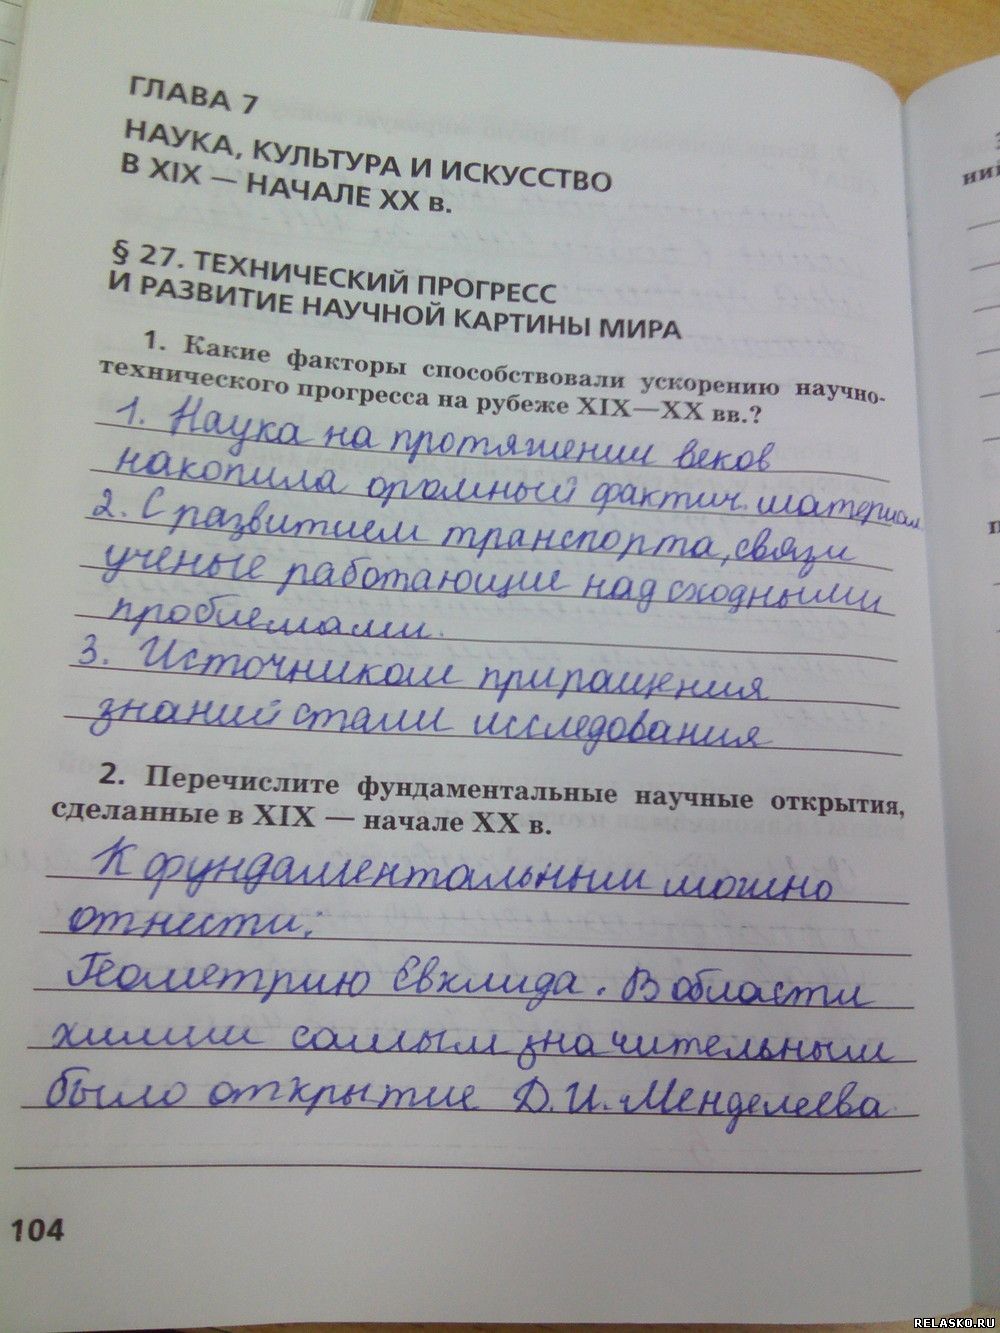 ГЛАВА 7
НАУКА, КУЛЬТУРА И ИСКУССТВО
В XIX — НАЧАЛЕ XX в.
§ 27. ТЕХНИЧЕСКИЙ ПРОГРЕСС
И РАЗВИТИЕ НАУЧНОЙ КАРТИНЫ МИРА
1. Какие факторы способствовали ускорению научно-
технического прогресса на рубеже XIX—XX вв.?
1. Наука на протяжении веков
накопила огромный фактич. материал
2. С развитием транспорта, связи
ученые работающие над сходными
проблемами.
3. Источником приращения
знаний стали исследования
2. Перечислите фундаментальные научные открытия,
сделанные в XIX — начале XX в.
К фундаментальным можно
отнести:
Геометрию Евклида. В области
химии самым значительным
было открытие Д.И. Менделеева.
104
RELASKO.RU